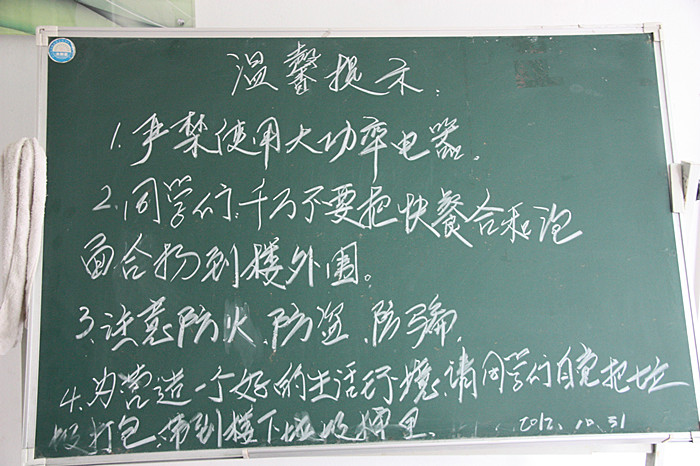 温馨提示.
1.严禁使用大功率电器.
2.同学们,千万不要把快餐合和泡
面合扔到楼外围。
3.注意防火、防盗、防骗.
4.为营造一个好的生活环境,请同学们自觉把垃
圾打包,带到楼下垃圾桶里. 2012.10.31